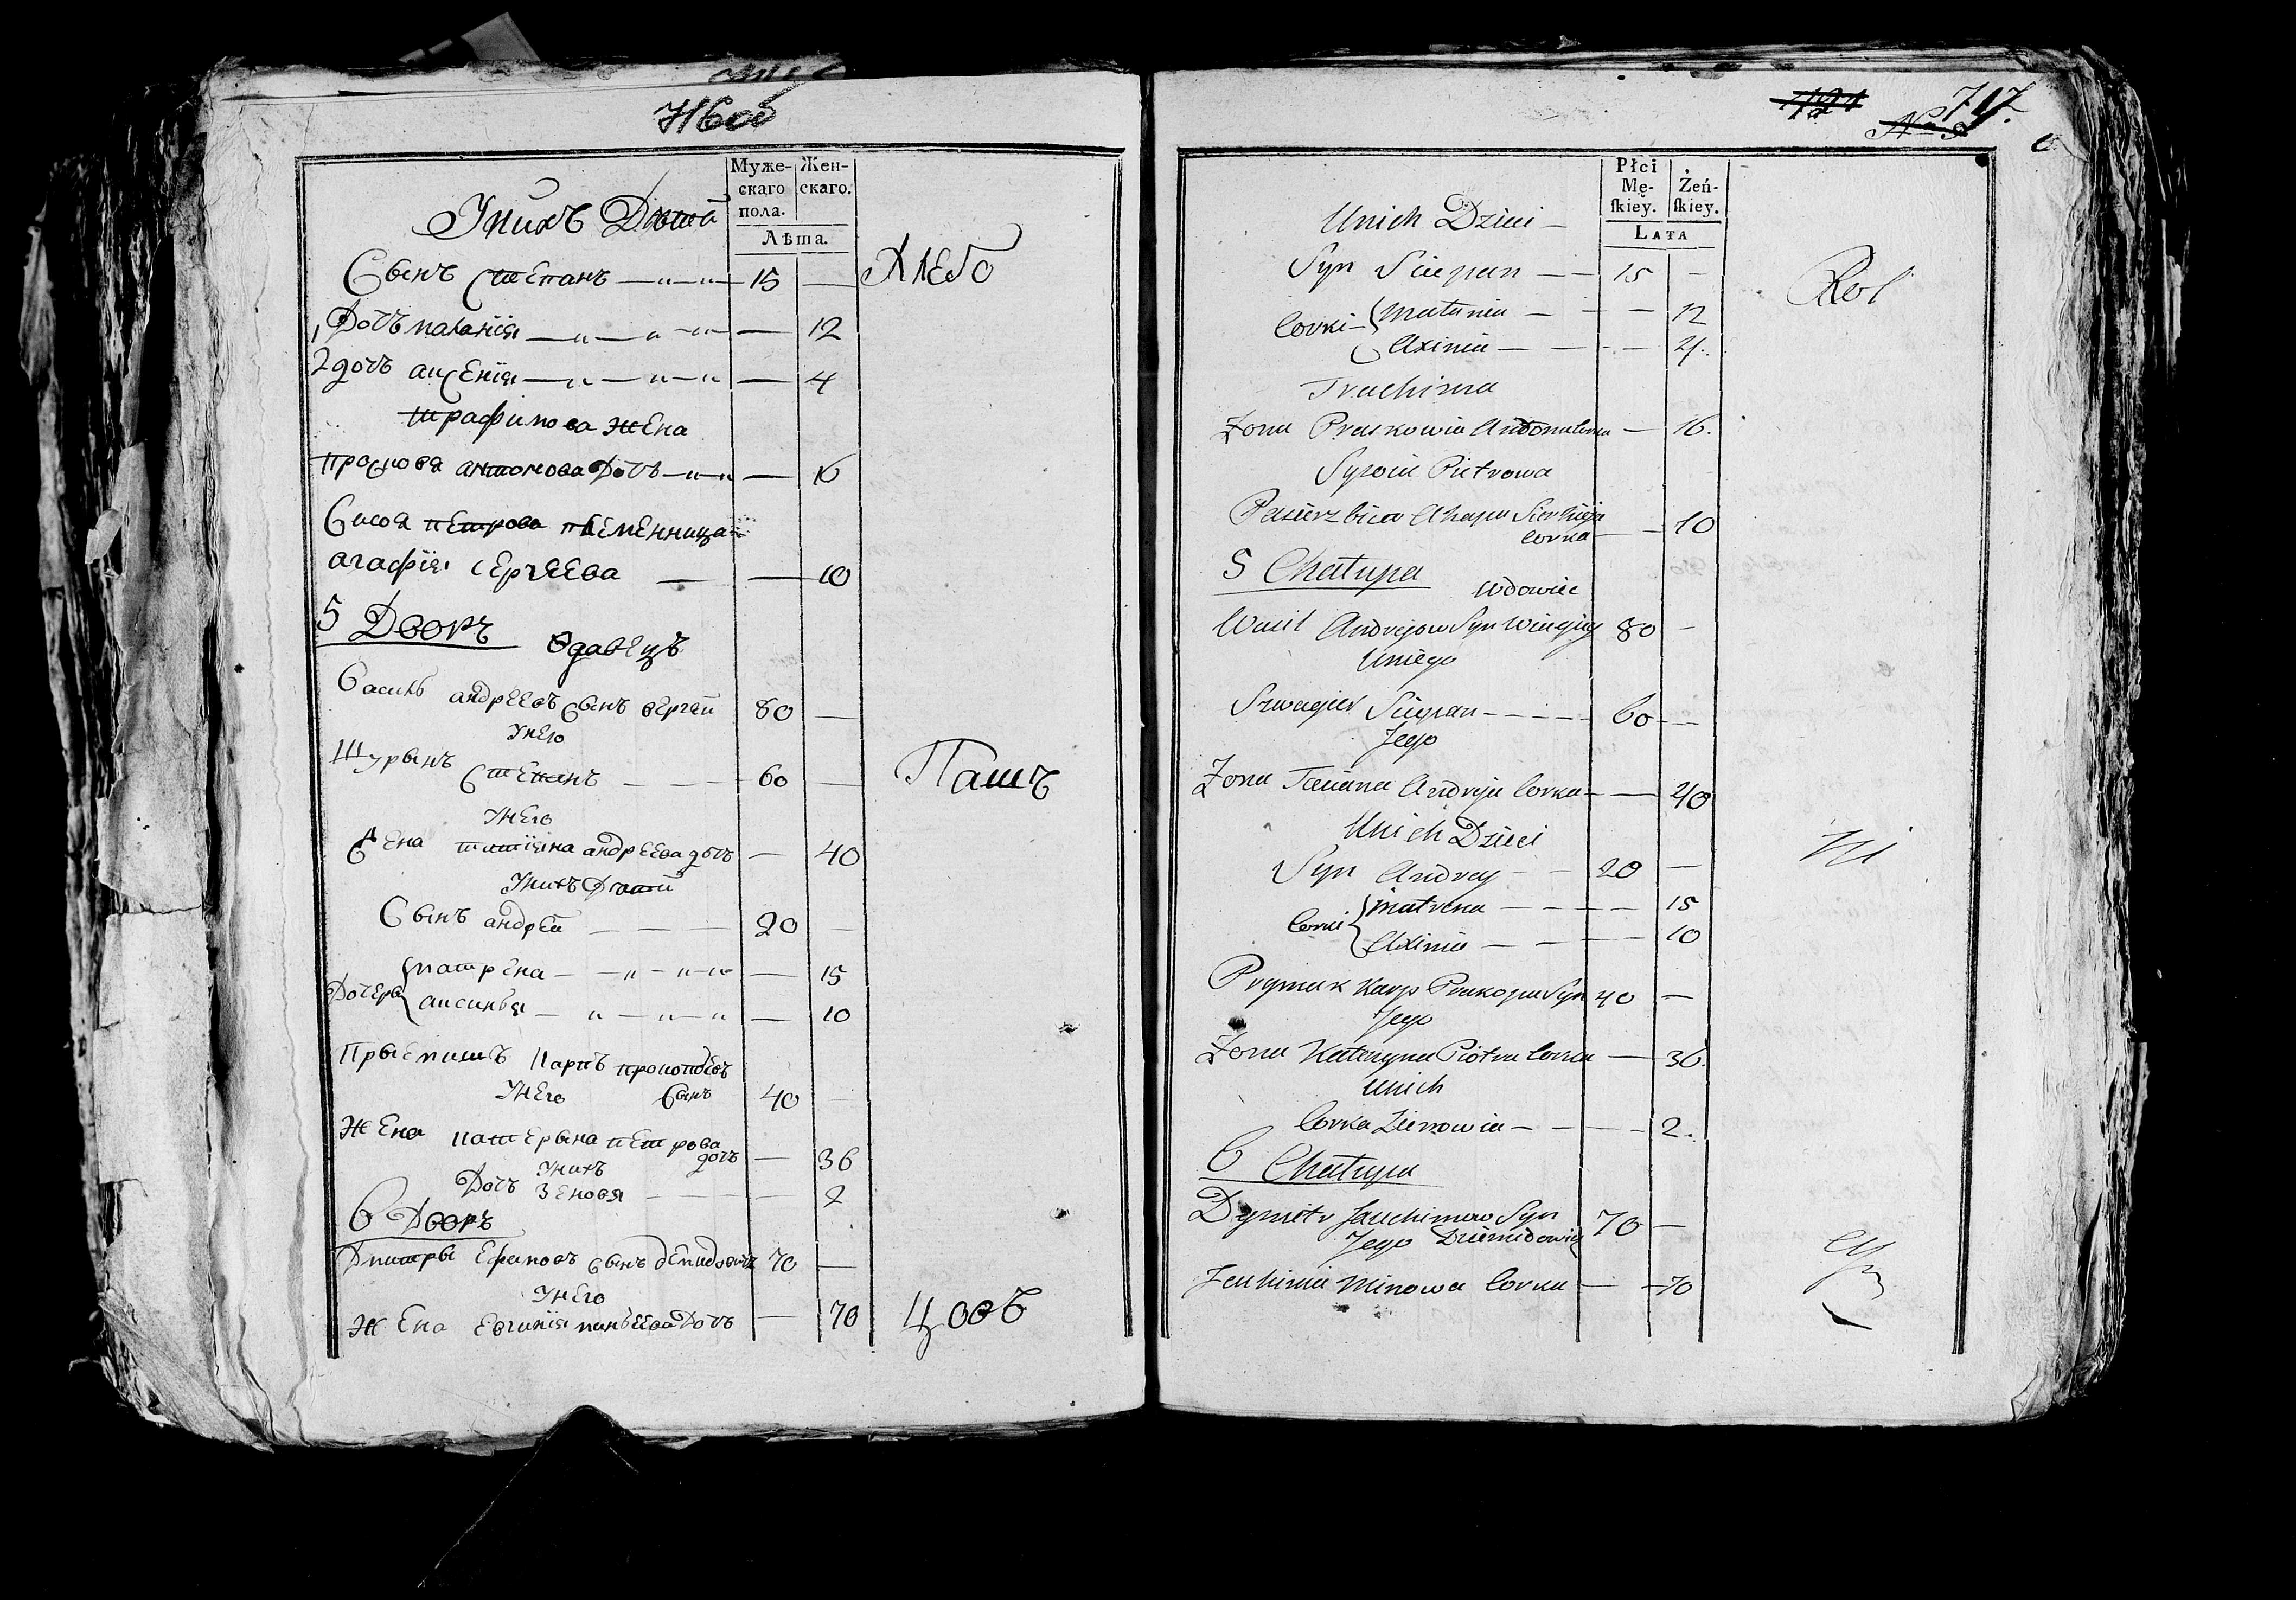 716 об
Муже-
скаго
пола.
Жен-
скаго.
Лѣта.
Унихъ Дѣти
Сынъ Степанъ — 15 —
Хлебо
1 Дочъ маланія — — 12
2 дочъ аксенія — — 4
трафимова жена
прасковя антонова Дочъ — — 16
Сисоя петрова племенница
агафія сергѣева — — 10
5 Дворъ
вдавецъ
Василь андрѣевъ сынъ 80 —
Унего
Шурынъ Степанъ — 60 —
Пашъ
Унего
Жена татіяна андрѣева дочъ — 40
Унихъ Дѣти
Сынъ андрей — 20 —
Дочери
матрена — — 15
аксинья — — 10
Прыемышъ Карпъ прокопіевъ
Унего Сынъ 40 —
Жена катерына петрова
дочъ — 36
Унихъ
Дочъ Зеновя — — 2
6 Дворъ
Дмитры Ефимовъ сынъ демидовичъ 70 —
Унего
Жена Евгинія минѣева Дочъ — 70
цовъ
717.
Płci
Mę-
skiey.
Żeń-
skiey.
Lata
Unich Dzieci —
Syn Sciepan — 15 —
Rol
Corki
Malania — — 12
Axinia — — 4.
Trachima
Zona Praskowia Andonu Corka — 16.
Sysoia Pietrowa
Pasierzbica Ahapa Sierhieja
Corka — — 10
5 Chałupa
Wdowiec
Wasil Andrejow Syn 80 —
Uniego
Szwagier Sciepan — 60 —
Jego
Zona Taciana Andreja Corka — — 40
Unich Dzieci
ni
Syn Andrey — 20 —
Corki
Matrena — — 15
Axinia — — 10
Prymak Karp Prakopa Syn 40 —
Jego
Zona Kateryna Piotra Corka — 36.
Unich
Corka Zienowia — — 2.
6 Chałupa
Dymitr Jauchimow Syn
Jego Dziemidowicz 70 —
Jeuhinia Minowa Corka — 70